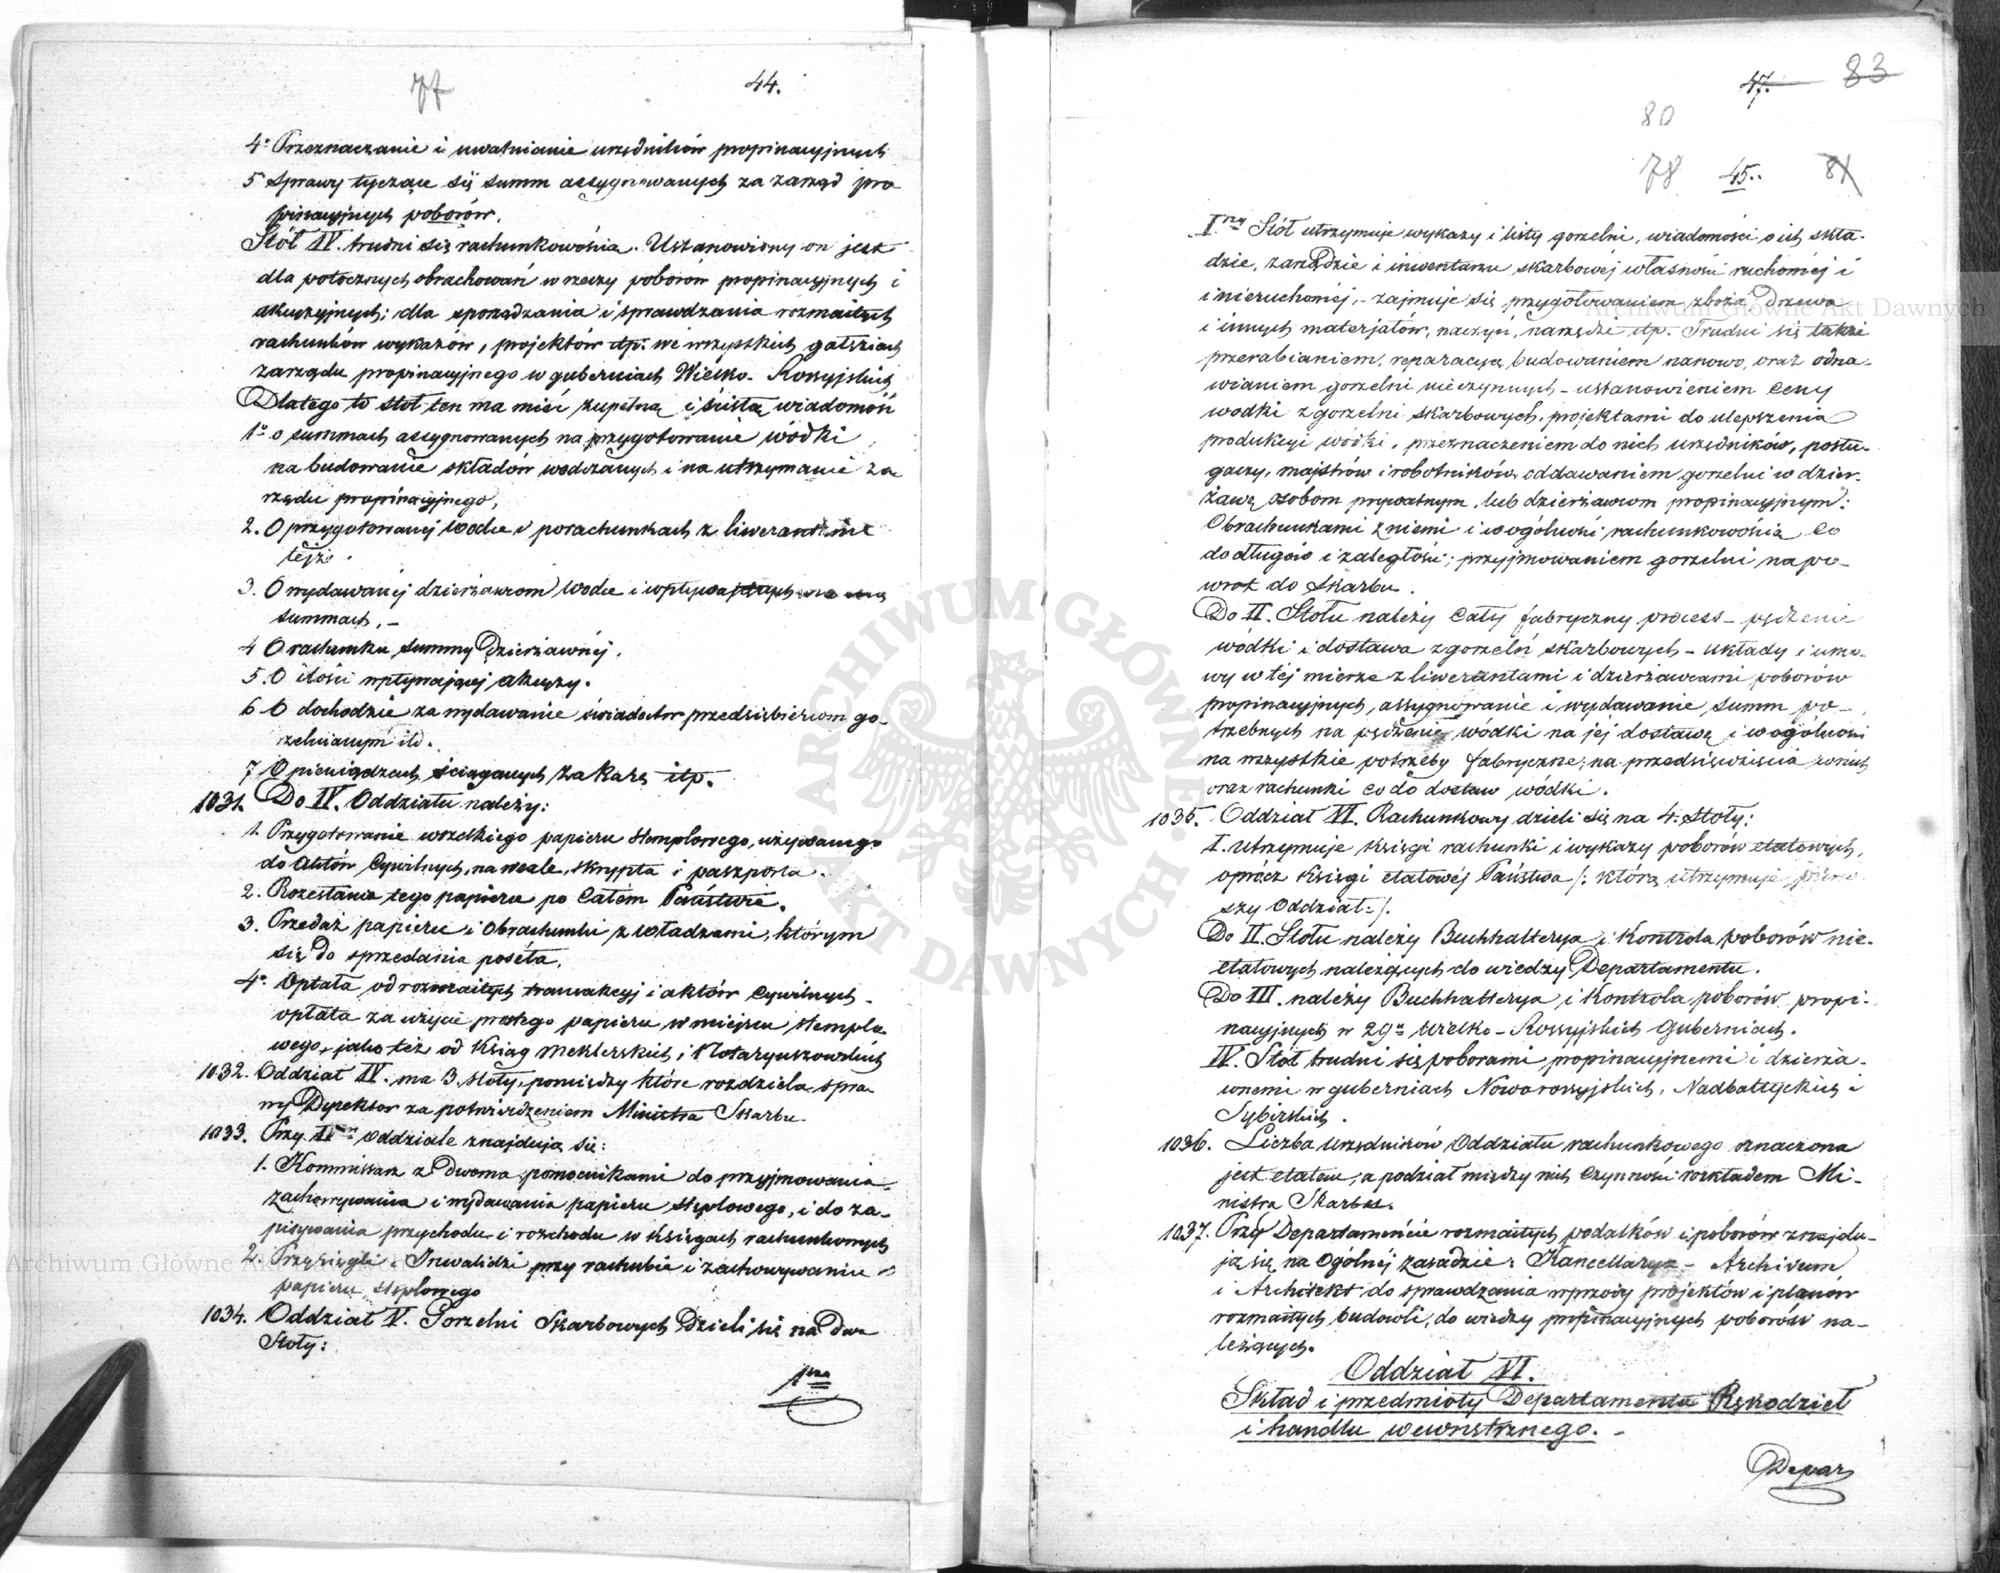 77
44.
4° Przeznaczanie i uwalnianie urzędników propinacyjnych
5 Sprawy tyczące się summ assygnowanych za zarząd pro
pinacyjnych poborów.
Stół IV. trudni się rachunkowością. Ustanowiony on jest
dla potocznych obrachowań w rzeczy poborów propinacyjnych i
akcyzyjnych; dla sporządzania i sprawdzania rozmaitych
rachunków wykazów, projektów itp. we wszystkich gałęziach
zarządu propinacyjnego w guberniach Wielko-Rossyjskich
Dlatego to stół ten ma mieć zupełną i ścisłą wiadomość
1° o summach assygnowanych na przygotowanie wódki,
na budowanie składów wodczanych i na utrzymanie za
rządu propinacyjnego,
2. O przygotowanej wodce i porachunkach z liwerantami
tejże.
3. O wydawanéj dzierżawcom wodce i wpływających za nią
summach. –
4 O rachunku summy Dzierżawnéj.
5. O ilości wpływającej akcyzy.
6 O dochodzie za wydawanie świadectw przedsiębiercom go-
rzelnianym itd.
7 O pieniądzach ściąganych za karę itp.
1031. Do IV. Oddziału należy:
1. Przygotowanie wszelkiego papieru stemplowego, używanego
do Aktów Cywilnych, na wexle, skrypta i paszporta.
2. Rozesłanie tego papieru po całém Państwie.
3. Przedaż papieru i Obrachunki z władzami, którym
się do sprzedania poséła.
4° Opłata od rozmaitych tranzakcyj i aktów Cywilnych –
opłata za użycie prostego papieru w miejscu stemplo
wego, jako też od Ksiąg Meklerskich i Notaryuszowskich
1032. Oddział IV. ma 3. stoły, pomiędzy które rozdziela spra
wy Dyrektor za potwierdzeniem Ministra Skarbu.
1033. Przy IVm Oddziale znajdują się:
1. Kommissarz z Dwoma pomocnikami do przyjmowania
zachowywania i wydawania papieru steplowego, i do za-
pisywania przychodu i rozchodu w Księgach rachunkowych
2. Przysięgli i Inwalidzi przy rachubie i zachowywaniu
papieru steplowego
1034. Oddział V. Gorzelni Skarbowych Dzieli się na Dwa
Stoły:
1wszy
47. 83
80
78 45. 81
Iszy Stół utrzymuje wykazy i listy gorzelni, wiadomości o ich skła-
dzie, zarządzie i inwentarzu skarbowej własności ruchoméj i
i nieruchoméj, – zajmuje się przygotowaniem zboża Drzewa
i innych materjałów, naczyń, narzędzi itp. Trudni się także
przerabianiem, reparacyą, budowaniem nanowo, oraz odna-
wianiem gorzelni nieczynnych – ustanowieniem ceny
wodki z gorzelni skarbowych, projektami do ulepszenia
produkcyi wódki, przeznaczeniem do nich urzędników, posłu-
gaczy, majstrów i robotników, oddawaniem gorzelni w dzier-
żawę osobom prywatnym, lub dzierżawcom propinacyjnym:
Obrachunkami z niemi i w ogólności rachunkowością co
do długów i zaległości; przyjmowaniem gorzelni napo-
wrot do Skarbu.
Do II. Stołu należy cały fabryczny process – pędzenie
wódki i dostawa z gorzelń skarbowych – układy i umo-
wy w téj mierze z liwerantami i dzierżawcami poborów
propinacyjnych, assygnowanie i wydawanie summ po-
trzebnych na pędzenie wódki na jéj dostawę i w ogólności
na wszystkie potrzeby fabryczne; na przedsięwzięcia
oraz rachunki co do dostaw wódki.
1035. Oddział VI. Rachunkowy dzieli się na 4. Stoły:
I. utrzymuje księgi rachunki i wykazy poborów etatowych,
oprócz Księgi etatowéj Państwa /: którą utrzymuje pierw
szy Oddział :/.
Do II. Stołu należy Buchhalterya i Kontrola poborów nie-
etatowych należących do wiedzy Departamentu.
Do III. należy Buchhalterya i Kontrola poborów propi-
nacyjnych w 29u Wielko-Rossyjskich Guberniach.
IV. Stół trudni się poborami propinacyjnemi i dzierża-
wnemi w guberniach Noworossyjskich, Nadbałtyckich i
Sybirskich.
1036. Liczba urzędników Oddziału rachunkowego oznaczona
jest etatem, a podział między nich czynności rozkładem Mi-
nistra Skarbu.
1037. Przy Departamencie rozmaitych podatków i poborów znajdu-
ją się na Ogólnéj zasadzie: Kancellarya – Archivum
i Architekt do sprawdzania projektów i planów
rozmaitych budowli, do wiedzy propinacyjnych poborów na-
leżących.
Oddział VI.
Skład i przedmioty Departamentu Rękodzieł
i handlu wewnętrznego. –
Depar
Archiwum Główne Akt Dawnych
ARCHIWUM GŁÓWNE AKT DAWNYCH